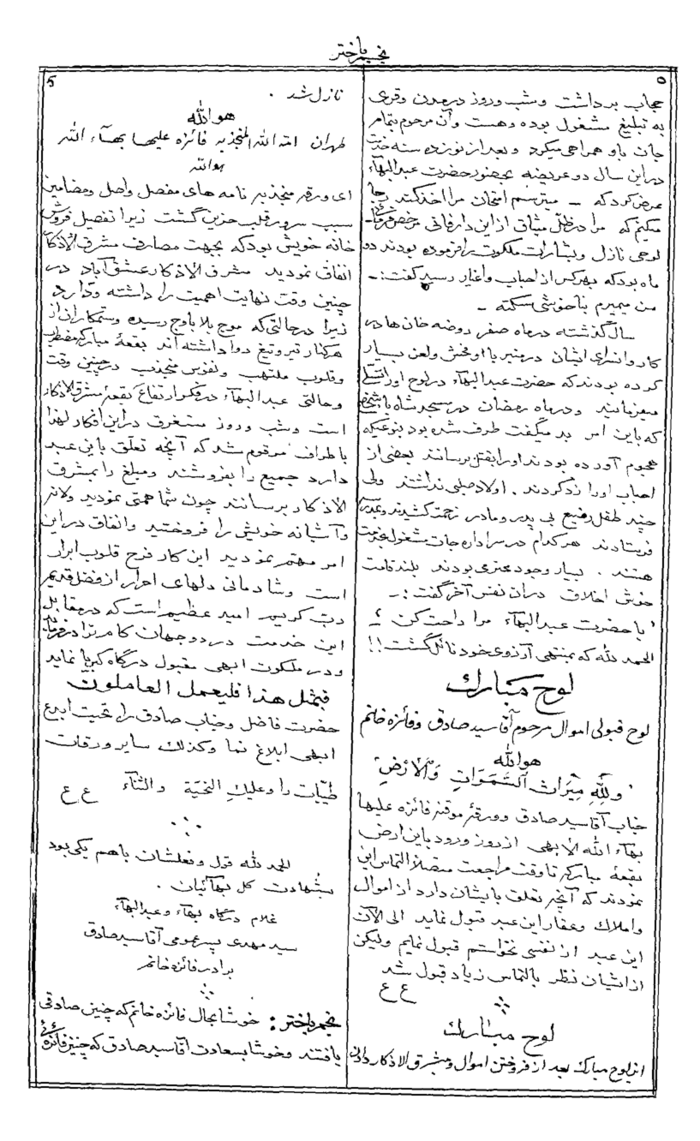 نجم باختر
۵
حجاب برداشت و شب و روز در مدن و قری
به تبلیغ مشغول بوده و هست و آن مرحوم بتمام
جان با او همراهی میکرد و بعد از نوزده سنه خدمت
در این سال دو عریضه بحضور حضرت عبدالبهآء
عرض کرد که ـ میترسم امتحان مرا اخذ کند رجا
میکنم که مرا در ظلّ میثاق از این دار فانی مرخص فرمائید
لوحی نازل و بشارات ملکوت را فرموده بودند دو
ماه بود که بهر کس از احباب و اغیار رسید گفت :ـ
من میمیرم با خوشی سکته ـ
سال گذشته در ماه صفر روضه خان ها در
کاروانسرای ایشان در منبر با او فحش و لعن بسیار
کرده بودند که حضرت عبدالبهآء در لوح او را تسلی
میفرمایند و در ماه رمضان در مسجد شاه با شخصی
که باین امر بد میگفت طرف شده بود بنوعیکه
هجوم آورده بودند او را بقتل برسانند بعضی از
احباب او را رد کردند . اولاد صلبی نداشتند ولی
چند طفل رضیع بی پدر و مادر زحمت کشیدند و بمدرسه
فرستادند هر کدام در سر اداره جات مشغول بخدمت
هستند . بسیار وجود محترمی بودند بلند قامت
خوش اخلاق در آن نفس آخر گفت :ـ
"یا حضرت عبدالبهآء مرا راحت کن"
الحمد لله که بمنتهی آرزوی خود نائل گشت !!
لوح مبارک
لوح قبولی اموال مرحوم آقا سید صادق و فائزه خانم
هوالله
"ولله میراث السَّمَوَاتِ وَالْاَرْضِ"
جناب آقا سید صادق و ورقهٔ موقنه فائزه علیها
بهآء الله الابهی از روز ورود باین ارض
بقعهٔ مبارکه تا وقت مراجعت متصلاً التماس این
نمودند که آنچه تعلق بایشان دارد از اموال
و املاک و عقار این عبد قبول نماید الی الآن
این عبد از نفسی نخواستم قبول نمایم ولیکن
از ایشان نظر بالتماس زیاد قبول شد
ع ع
لوح مبارک
این لوح مبارک بعد از فروختن اموال و بمشرق الاذکار دادن
5
نازل شد .
هوالله
طهران امة الله المنجذبه فائزه علیها بهآء الله
هوالله
ای ورقه منجذبه نامه های مفصل واصل و مضامین
سبب سرور قلب حزین گشت زیرا تفصیل فروش
خانه خویش بود که بجهت مصارف مشرق الاذکار
انفاق نمودید مشرق الاذکار عشق آباد در
چنین وقت نهایت اهمیت را داشته و دارد
زیرا در حالتی که موج بلا باوج رسیده و ستمکاران از
هر کنار تیر و تیغ روا داشته اند بقعهٔ مبارکه مضطرب
و قلوب ملتهب و نفوس منجذب در چنین وقت
و حالتی عبدالبهآء در فکر ارتفاع بقعهٔ مشرق الاذکار
است و شب و روز مستغرق در این افکار لهذا
باطراف مرقوم شد که آنچه تعلق باین عبد
دارد جمیع را بفروشند و مبلغ را بمشرق
الاذکار برسانند چون شما همتی نمودید و لانه
و آشیانه خویش را فروختید و انفاق در این
امر مهتم نمودید این کار فرح قلوب ابرار
است و شادمانی دلهای احرار از فضل قدیم
ربّ کریم امید عظیم است که در مقابل
این خدمت در دو جهان کامرانی فرماید
و در ملکوت ابهی مقبول درگاه کبریا نماید
فبمثل هذا فلیعمل العاملون
حضرت فاضل و جناب صادق را تحیت ابدع
ابهی ابلاغ نما و کذلک سایر ورقات
طیّبات را و علیكِ التحیّة والثنآء ع ع
الحمد لله قول و فعلشان با هم یکی بود
بشهادت کل بهآئیان .
غلام درگاه بهآء و عبدالبهآء
سید مهدی پسر عموی آقا سید صادق
برادر فائزه خانم
نجم باختر : خوشا بحال فائزه خانم که چنین صادقی
یافتند و خوشا بسعادت آقا سید صادق که چنین فائزه‌ئی